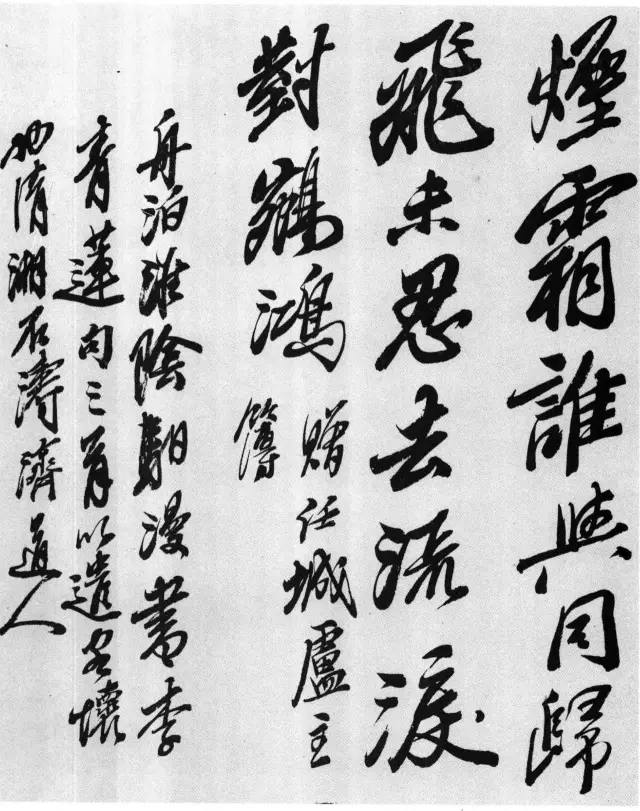 煙霜誰與同歸
飛未忍去流淚
對鵷鴻
贈任城盧主
簿
舟泊淮陰漫書李
青蓮句三首以遣客懷
清湘石濤濟道人